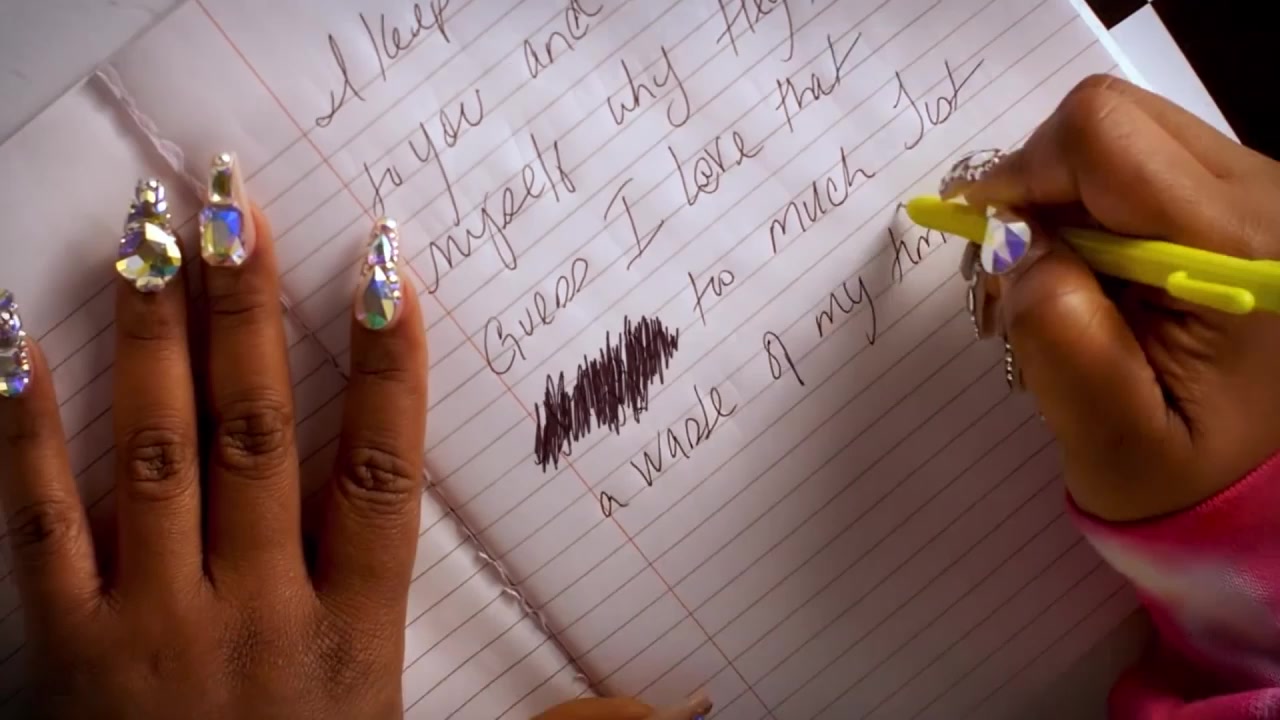 I keep
to you and
myself why they
Guess I love that
too much Just
a waste of my